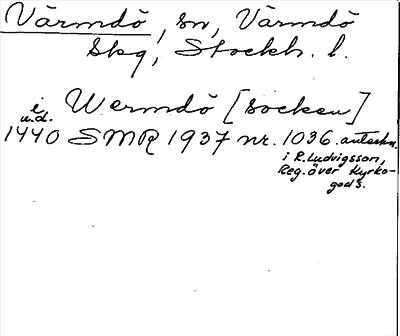 Värmdö, sn, Värmdö
Skg, Stockh. l.
i Wermdö [socken]
u.d.
1440 SMR 1937 nr. 1036. anteckn.
i R. Ludvigsson,
Reg. över Kyrko-
gods.